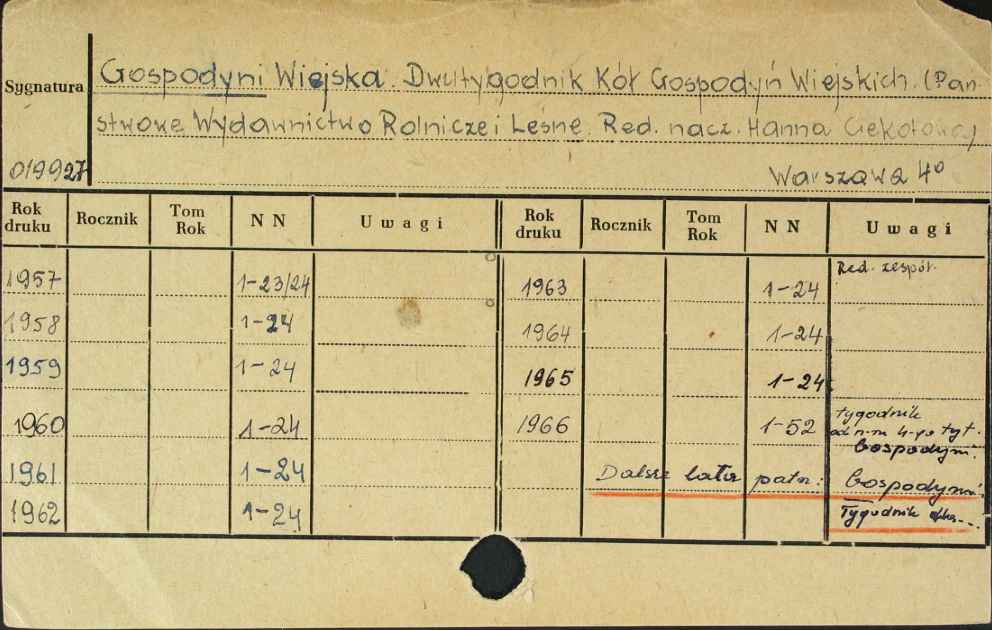 Sygnatura
Gospodyni Wiejska. Dwutygodnik Kół Gospodyń Wiejskich. (Pań-
stwowe Wydawnictwo Rolnicze i Leśne. Red. nacz. Hanna
019927
Warszawa 4°
Rok druku Rocznik Tom Rok N N Uwagi Rok druku Rocznik Tom Rok N N Uwagi
1957 1-23/24 1963 1-24 Red. zespół.
1958 1-24 1964 1-24
1959 1-24 1965 1-24
1960 1-24 1966 1-52 tygodnik
od n-ru 4-go tyt.
Gospodyni.
1961 1-24 Dalsze lata patrz: Gospodyni.
1962 1-24 Tygodnik